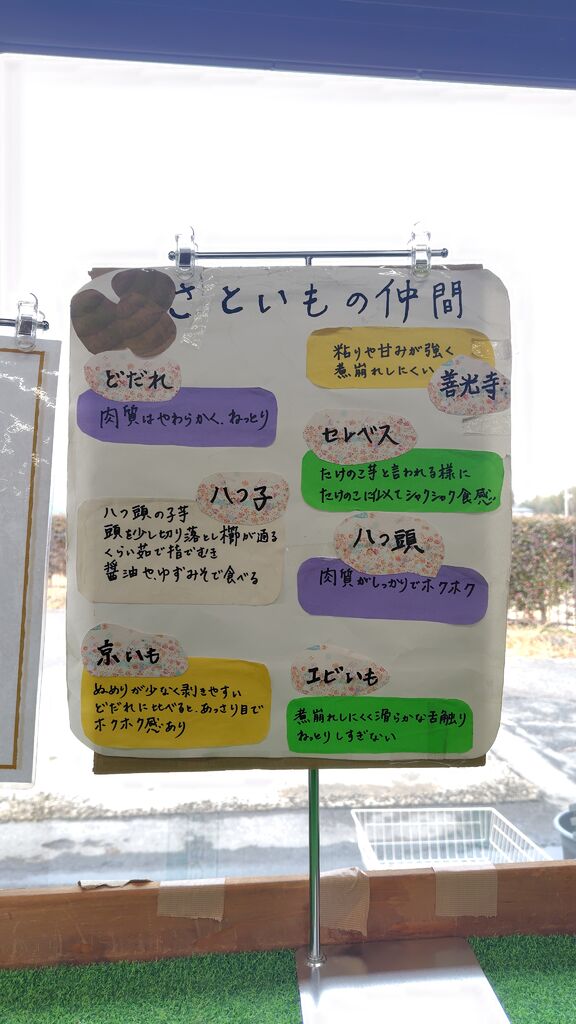 さといもの仲間
どだれ
肉質はやわらかく、ねっとり
粘りや甘みが強く
煮崩れしにくい
善光寺
セレベス
たけのこ芋と言われる様に
たけのこに似てシャクシャク食感
八つ子
八つ頭の子芋
頭を少し切り落とし櫛が通る
くらい茹で指でむき
醤油や、ゆずみそで食べる
八つ頭
肉質がしっかりでホクホク
京いも
ぬめりが少なく剥きやすい
どだれに比べると、あっさり目で
ホクホク感あり
エビいも
煮崩れしにくく滑らかな舌触り
ねっとりしすぎない